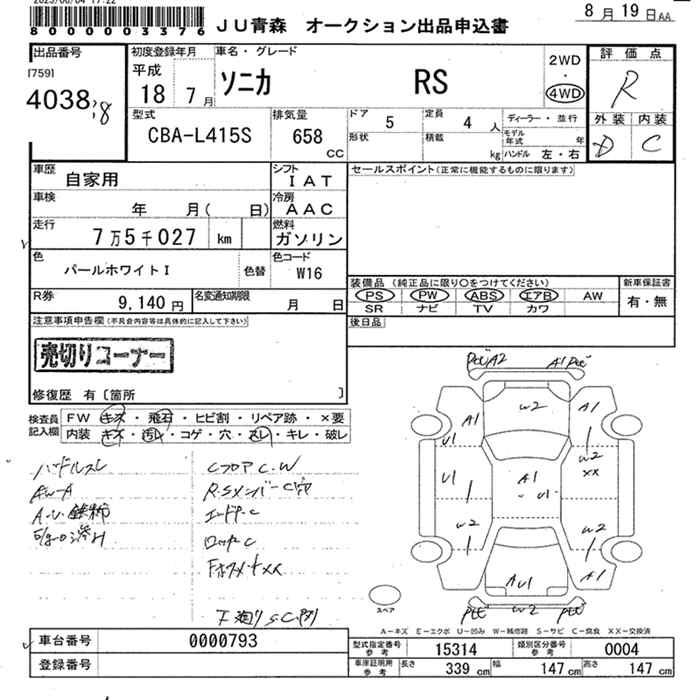 8月19日AA
800000003376
JU青森 オークション出品申込書
出品番号
[759]
4038
初度登録年月
平成
18 7月
車名・グレード
ソニカ RS
2WD
・
4WD
評価点
R
外装 内装
D C
型式
CBA-L415S
排気量
658
CC
ドア 5
形状
定員 4 人
積載 kg
ディーラー・並行
モデル年式 年
ハンドル 左・右
車歴
自家用
シフト
IAT
セールスポイント(正常に機能するものに限ります)
車検
年 月( 日)
冷房
AAC
走行
7万5千027 km
燃料
ガソリン
色
パールホワイトI
色替
色コード
W16
装備品 (純正品に限り○をつけてください)
PS PW ABS エアB AW
SR ナビ TV カワ
新車保証書
有・無
R券
9,140円
名変通知期限
月 日
後日品
注意事項申告欄(不具合内容等は具体的に記入して下さい)
売切りコーナー
修復歴 有〔箇所 〕
検査員記入欄
FW キズ・飛石・ヒビ割・リペア跡・×要
内装 キズ・汚れ・コゲ・穴・スレ・キレ・破レ
ハンドルスレ
AW-A
CフロアC.W
エンドP-C
A2
A1
W2
A1
A1
U1
W2
XX
U1
A1
U1
W2
W2
A1
AU1
W2
スペア
A-キズ E-エクボ U-凹み W-補修跡 S-サビ C-腐食 XX-交換済
車台番号 0000793
登録番号
型式指定番号 参考 15314
類別区分番号 参考 0004
車庫証明用 参考 長さ 339cm 幅 147cm 高さ 147cm